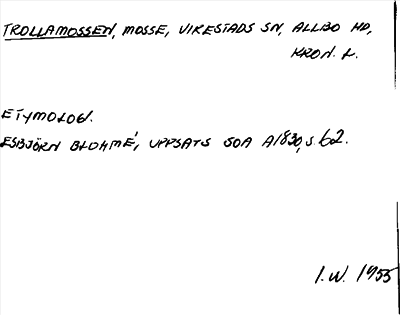 TROLLAMOSSEN, MOSSE, VIRESTADS SN, ALLBO HD,
KRON. L.
ETYMOLOGI.
ESBJÖRN BLOHMÉ, UPPSATS SOA A1830, S. 62.
I.W. 1955